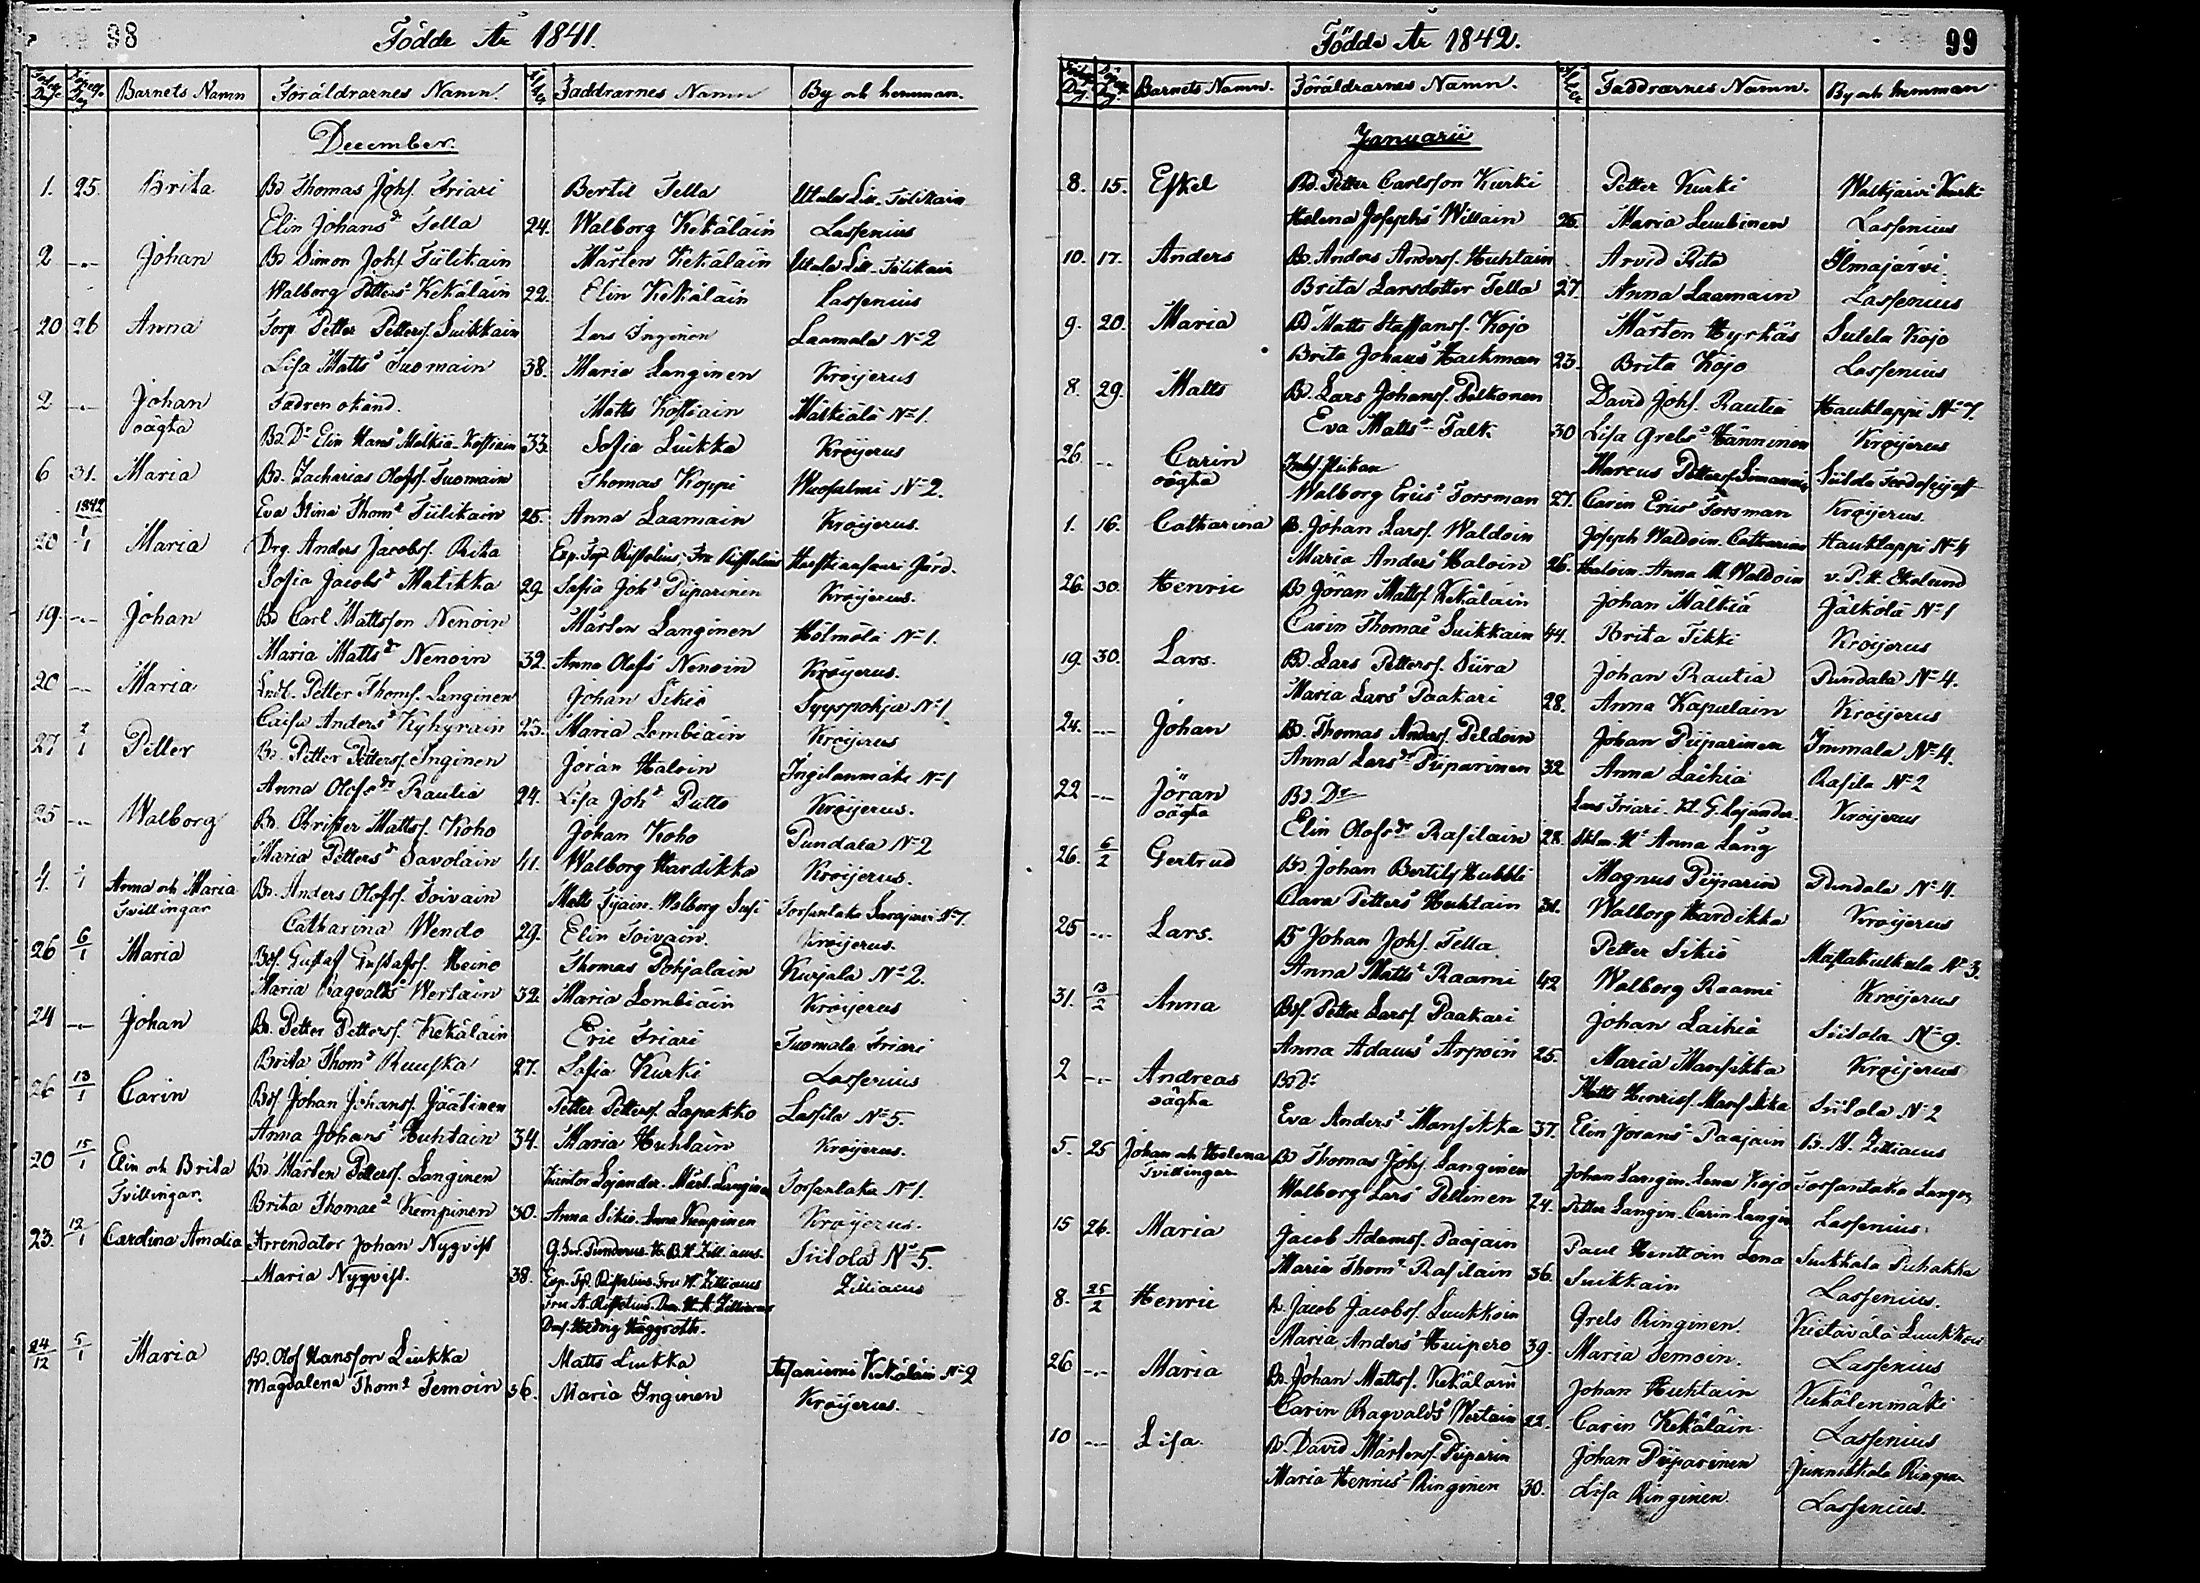 98
Födde År 1841.
Barnets Namn Föräldrarnes Namn. Faddrarnes Namn By och hemman.
December.
1. 25. Brita Bd. Thomas Johs. Friari Bertil Tella
Elin Johansdr Tella 24. Walborg Kekäläin Lassenius
2 -"- Johan Bd Simon Johs. Tiilikain Mårten Kekäläin
Walborg Petters Kekäläin 22. Elin Kekäläin Lassenius
20 26 Anna Torp. Petter Petters. Suikkain Lars Inginen Laamala No 2
Lisa Matts Suomain 38. Maria Langinen Kröijerus
2 -"- Johan Fadren okänd. Matts Kostiain Mälkiälä No 1.
oägta Bd. Dr Elin Hans Mälkiä Kostiain 33. Sofia Liukka Kröijerus
6 31. Maria Bd. Zacharias Olofs. Suomain Thomas Koppi Wuosalmi No 2.
1842 Eva Stina Thoms Tiilikain 25. Anna Laamain Kröijerus.
20 1/1 Maria Drg. Anders Jacobs. Rita
Sofia Jacobs Matikka 29. Sofia Johs Piiparinen Kröijerus.
19. -"- Johan Bd Carl Mattsson Nenoin Mårten Langinen Hölmölä No 1.
Maria Matts Nenoin 32. Anna Olofs Nenoin Kröijerus.
20 -"- Maria Petter Thoms. Langinen Johan Sikiö Syyspohja No 1
Caisa Anders Kyhyräin 23. Maria Lembiäin Kröijerus
27 2/1 Petter Bd. Petter Petters. Inginen Jöran Haloin Ingilänmäki No 1
Anna Olofsdr Rautia 24. Lisa Johs Putto Kröijerus.
25 -"- Walborg Bd. Christer Matts. Koho Johan Koho Pundala No 2
Maria Petters Savolain 41. Walborg Hardikka Kröijerus.
4. Anna och Maria Bd. Anders Olofs. Toivain
Tvillingar Catharina Wendo 29. Elin Toivain Kröijerus.
26 6/1 Maria Bd. Gustaf Gustafs. Heino Thomas Pohjalain Kurjala No 2.
Maria Ragvalds Wertain 32. Maria Lembiäin Kröijerus
24 -"- Johan Bd. Petter Petters. Kekäläin Eric Friari Tuomala Friari
Brita Thoms Ruuska 27. Sofia Kurki Lassenius
26 13/1 Carin Bd. Johan Johans. Jäätinen Petter Petters. Lapakko Lasila No 5.
Anna Johans Huhtain 34. Maria Huhtain Kröijerus.
20 15/1 Elin och Brita Bd. Mårten Petters. Langinen Kantor Lojander. Mårt. Langinen Torsantaka No 1.
Tvillingar Brita Thomae Kempinen 30. Anna Sikiö. Anna Kempinen Kröijerus.
23. 12/1 Carolina Amalia Arrendator Johan Nyqvist Siitola No 5.
Maria Nyqvist. 38. Zilliacus
24/12 5/1 Maria Bd. Olof Hansson Liukka Matts Liukka Kekäläin No 2
Magdalena Thoms Temoin 36. Maria Inginen Kröijerus.
99
Födde År 1842.
Barnets Namn. Föräldrarnes Namn. Faddrarnes Namn. By och hemman
Januarii
8. 15. Eskel Bd. Petter Carlsson Kurki Petter Kurki Walkjärvi Kurki
Helena Josephs Willain 25. Maria Lembinen Lassenius
10. 17. Anders Bd. Anders Anders. Huhtain Arvid Rita Ilmajärvi.
Brita Larsdotter Tella 27 Anna Laamain Lassenius
9. 20. Maria Bd Matts Staffans. Kojo Mårten Hyrkäs Sutela Kojo
Brita Johans Hackman 23. Brita Kojo Lassenius
8. 29. Matts Bd. Lars Johans. Pelkonen David Johs. Rautia Hauklappi No 7.
Eva Matts Talk. 30 Lisa Grels Hänninen Kröijerus
26. -"- Carin
oägta Walborg Erics Forsman 27. Carin Erics Forsman Kröijerus.
1. 16. Catharina Bd. Johan Lars. Waldoin Joseph Waldoin. Catharina Hauklappi No 4
Maria Anders Haloin 26. Haloin. Anna M. Waldoin v. P. H. Ekelund
26. 30. Henric Bd. Jöran Matts. Kekäläin Johan Mälkiä Jälkölä No 1
Carin Thomae Suikkain 44. Brita Tikki Kröijerus
19. 30. Lars. Bd. Lars Petters. Siira Johan Rautia Pundala No 4.
Maria Lars Paakari 28. Anna Kapulain Kröijerus
24. -"- Johan Bd. Thomas Anders. Peldoin Johan Piiparinen Immala No 4.
Anna Lars Piiparinen 32 Anna Laihia Rasila No 2
22 -"- Jöran Bd. Dr Lars Friari. Kl. G. Lojander. Kröijerus
oägta Elin Olofsdr Rasilain 28. Anna Lång
26. 6/2 Gertrud Bd. Johan Bertils. Hubbli Magnus Piiparin Pundala No 4.
Clara Petters Huhtain 31. Walborg Hardikka Kröijerus
25 -"- Lars. Bd Johan Johs. Tella Petter Sikiö Mattakulkula No 3.
Anna Matts Raami 42 Walborg Raami Kröijerus
31. 13/2 Anna Bd. Petter Lars. Paakari Johan Laihia Siitola No 9.
Anna Adams Arpoin 25. Maria Mansikka Kröijerus
2 -"- Andreas Bd Dr Matts Henrics. Mansikka Siitola No 2
oägta Eva Anders Mansikka 37. Elin Jörans Paajain B. M. Zilliacus
5. 25 Johan och Helena Bd Thomas Johs. Langinen Johan Langin. Lena Kojo Torsantaka
Tvillingar Walborg Lars Pellinen 24. Petter Langin. Carin Langin Lassenius.
15 26. Maria Jacob Adams. Paajain Paul Henttoin Lena Suikkala Puhakka
Maria Thoms Rasilain 36. Suikkain Lassenius.
8. 25/2 Henric Bd. Jacob Jacobs. Luukkoin Grels Ringinen.
Maria Anders Huipero 39. Maria Temoin. Lassenius
26 -"- Maria Bd. Johan Matts. Kekäläin Johan Huhtain Kekälenmäki
Carin Ragvalds Wertain 22. Carin Kekäläin Lassenius
10 -"- Lisa. Bd. David Mårtens. Piiparin Johan Piiparinen
Maria Henrics Ringinen 30. Lisa Ringinen Lassenius.